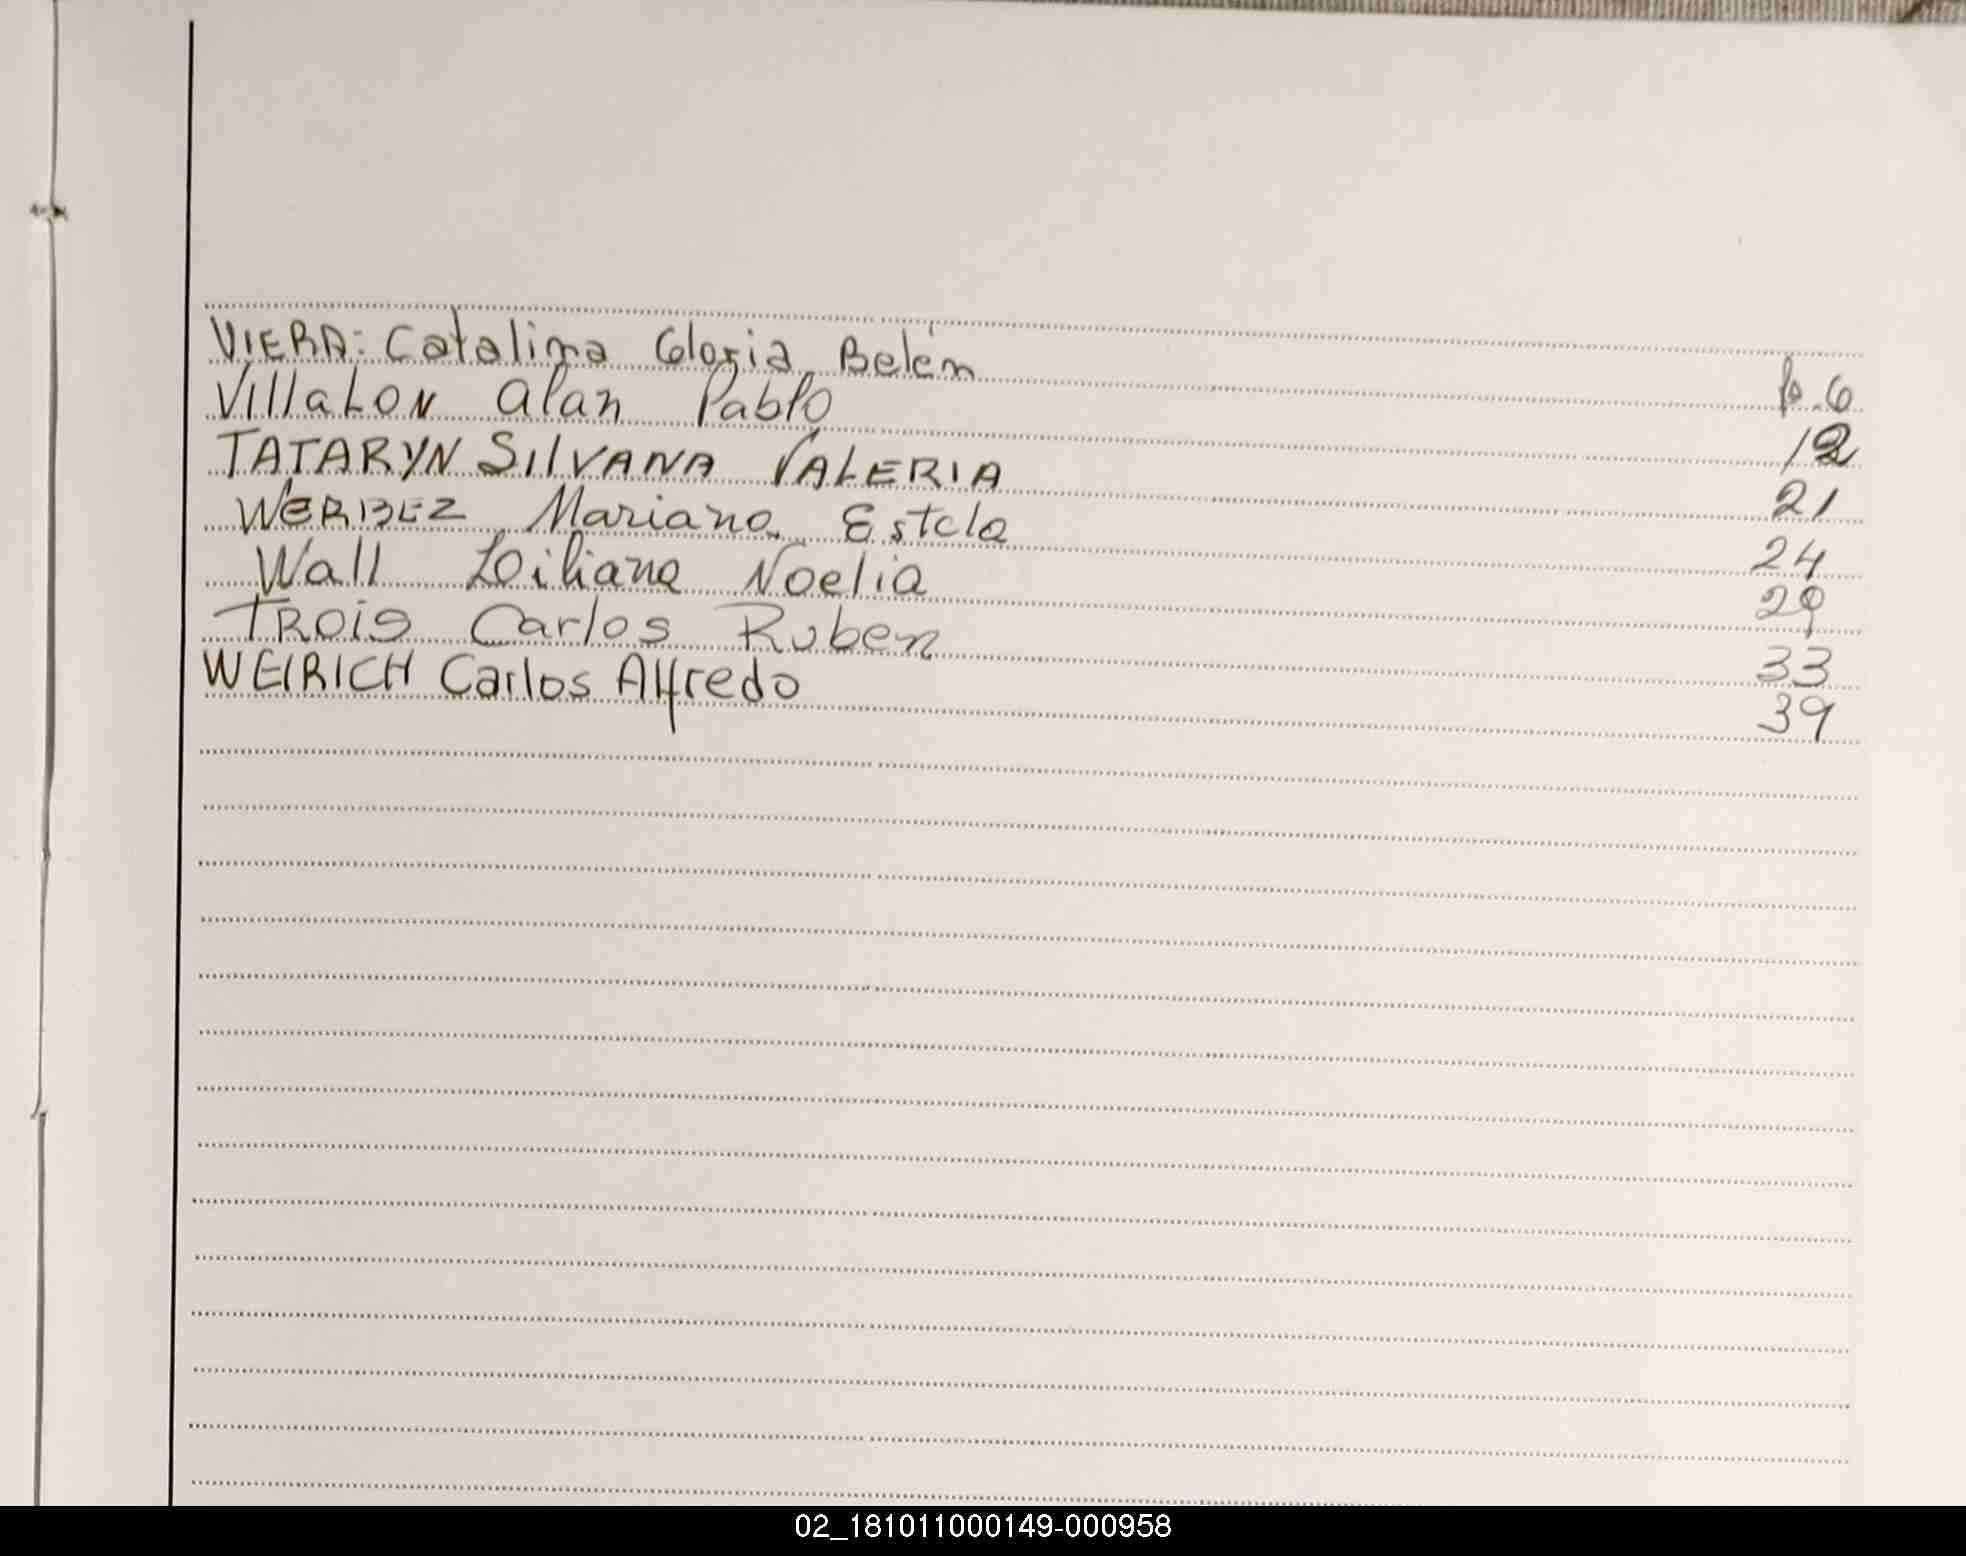 VIERA: Catalina Gloria Belén fo. 6
VillaLON Alan Pablo 12
TATARYN SIlVANA VALERIA 21
WERBEZ Mariana Estela 24
Wall Liliana Noelia 29
TROis Carlos Ruben 33
WEIRICH Carlos Alfredo 39
02_181011000149-000958